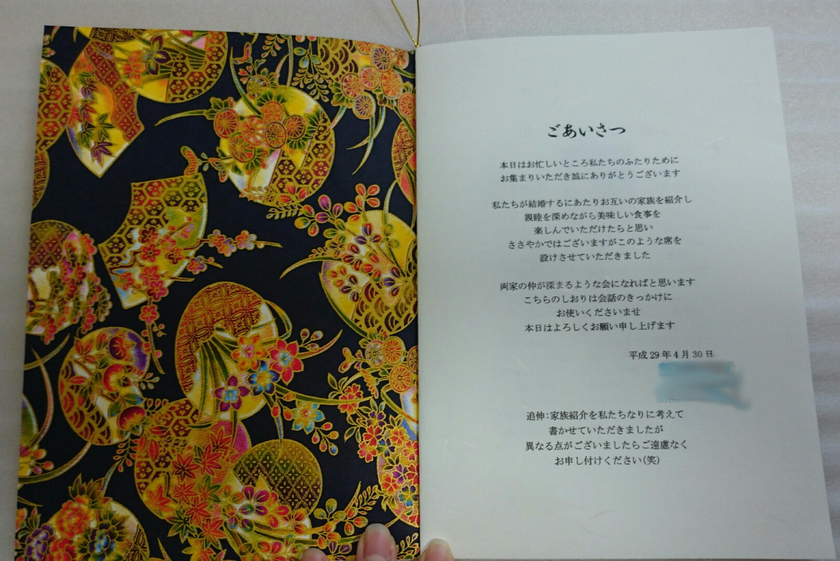 ごあいさつ
本日はお忙しいところ私たちのふたりために
お集まりいただき誠にありがとうございます
私たちが結婚するにあたりお互いの家族を紹介し
親睦を深めながら美味しい食事を
楽しんでいただけたらと思い
ささやかではございますがこのような席を
設けさせていただきました
両家の仲が深まるような会になればと思います
こちらのしおりは会話のきっかけに
お使いくださいませ
本日はよろしくお願い申し上げます
平成29年4月30日
追伸:家族紹介を私たちなりに考えて
書かせていただきましたが
異なる点がございましたらご遠慮なく
お申し付けください(笑)